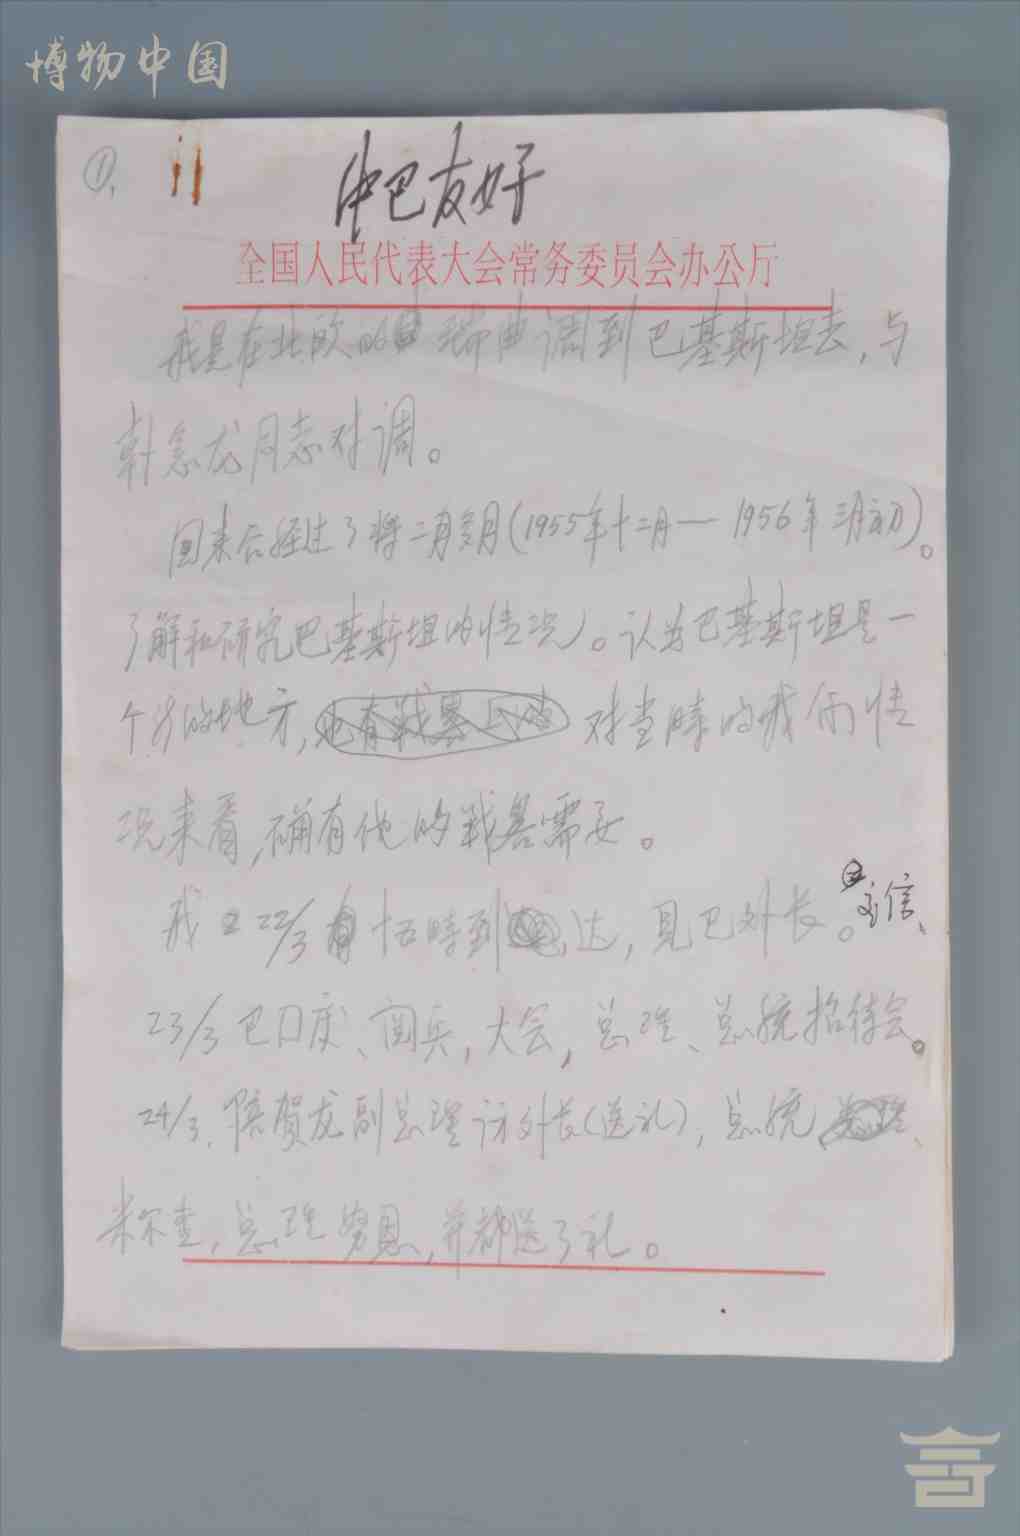 博物中国
①.
中巴友好
全国人民代表大会常务委员会办公厅
我是在北欧的瑞典调到巴基斯坦去，与
韩念龙同志对调。
回来后经过了将二月多月（1955年十二月——1956年三月初）。
了解和研究巴基斯坦的情况。认为巴基斯坦是一
个好的地方，对当时的我们情
况来看，确有他的战略需要。
我22/3十五時到达，见巴外长。交信、
23/3巴国庆、阅兵，大会，总理、总统招待会。
24/3.陪贺龙副总理访外长（送礼），总统、
米尔查，总理，并都送了礼。